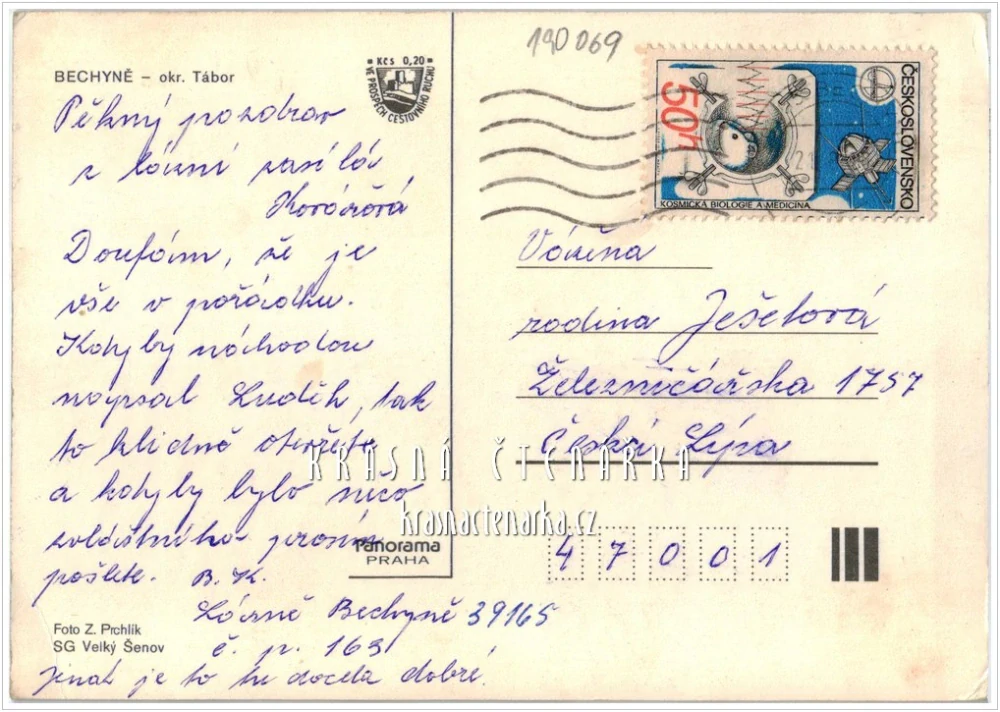 190069
BECHYNĚ – okr. Tábor
Kčs 0,20
VE PROSPĚCH CESTOVNÍHO RUCHU
Pěkný pozdrav
z lázní zasílá
Kovářová
Doufám, že je
vše v pořádku.
Kdyby náhodou
napsal Luděk, tak
to klidně otevřete
a kdyby bylo něco
zvláštního prosím
pošlete. B. K.
Lázně Bechyně 39165
č. p. 163
Jinak je to tu docela dobré.
Foto Z. Prchlík
SG Velký Šenov
Panorama
PRAHA
ČESKOSLOVENSKO
50h
KOSMICKÁ BIOLOGIE A MEDICÍNA
Vážená
rodina Ješetová
Železničářská 1757
Česká Lípa
47001
KRÁSNÁ ČTENÁŘKA
krasnactenarka.cz